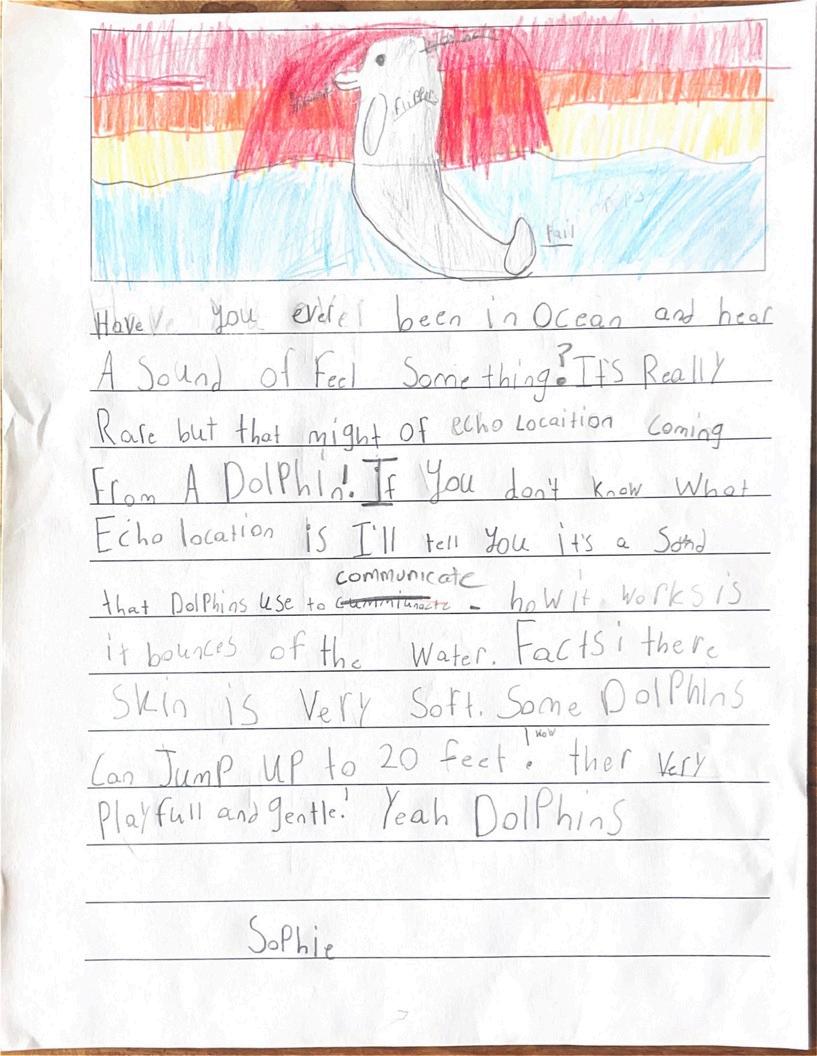 flipper
tail
Have you ever been in Ocean and hear
A Sound of Feel Something? It's Really
Rare but that might of echo Locaition coming
From A DolPhin! If You don't know What
Echo location is I'll tell you it's a Sond
communicate
that DolPhins use to - how it works is
it bounces of the Water. Facts: there
Skin is Very Soft. Some DolPhins
Can Jump UP to 20 feet! wow ther very
Playfull and gentle! Yeah DolPhins
SoPhie